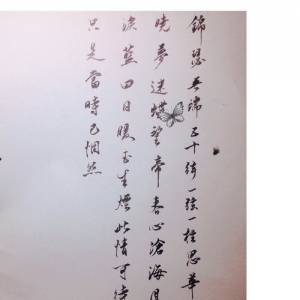 錦瑟無端五十絃一弦一柱思華
曉夢迷蝶望帝春心滄海月
淚藍田日暖玉生煙此情可待
只是當時已惘然